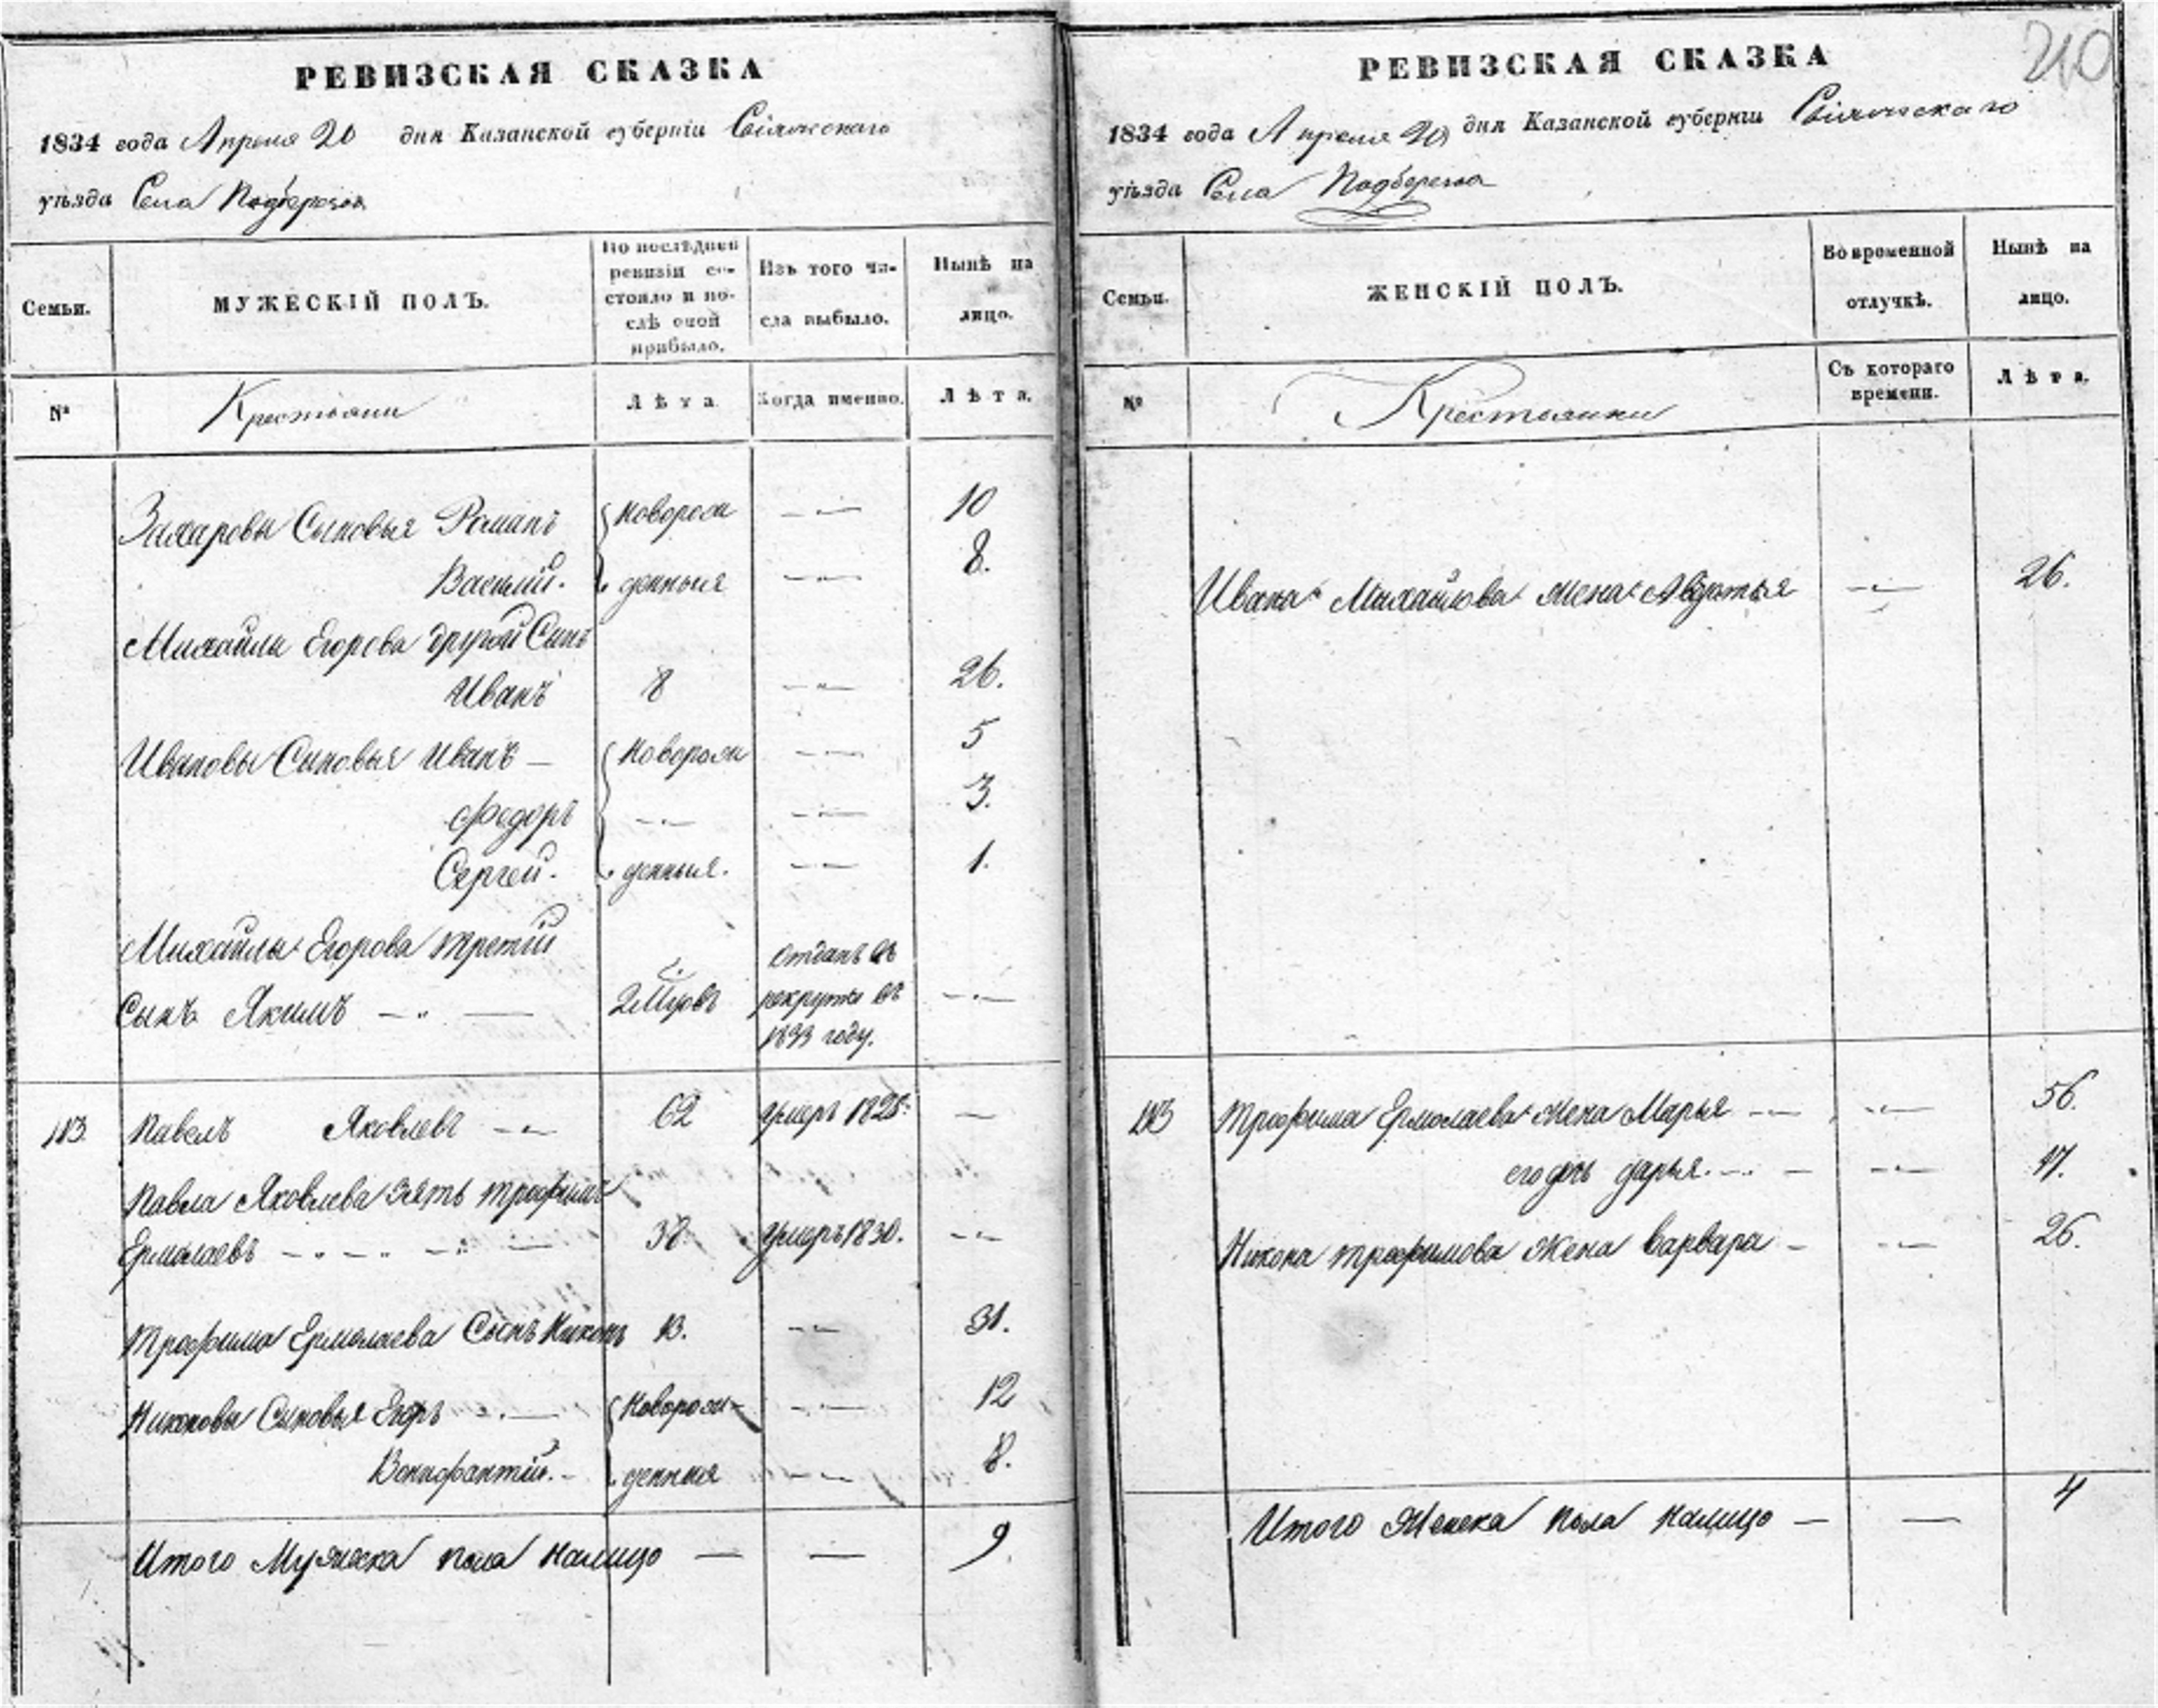 РЕВИЗСКАЯ СКАЗКА
1834 года Апреля 20 дня Казанской губерніи Свіяжскаго
уѣзда Села Подберезья
Семьи.
МУЖЕСКІЙ ПОЛЪ.
По послѣдней ревизіи состояло и послѣ оной прибыло.
Изъ того числа выбыло.
Нынѣ на лицо.
№
Крестьяни
Лѣта
Когда именно.
Лѣта.
Захаровы Сыновья Романъ Новорож 10
Василий. денныя 8.
Михайлы Егорова другой Сынъ
Иванъ 8 26.
Ивановы Сыновья Иванъ — Новорож 5
Федоръ 3.
Сергей. денныя. 1.
Михайлы Егорова третий Отданъ въ
Сынъ Якимъ рекруты въ
1833 году.
113. Павелъ Яковлевъ 62 Умеръ 1828. —
Павла Яковлева зять Трофимъ
Ермолаевъ 38 Умеръ 1830.
Трофима Ермолаева Сынъ Никонъ 13. 31.
Никоновы Сыновья Егоръ Новорож- 12
Вонифантий. денныя 8.
Итого Мужеска пола налицо — — 9
210
РЕВИЗСКАЯ СКАЗКА
1834 года Апреля 20 дня Казанской губерніи Свіяжскаго
уѣзда Села Подберезья
Семьи.
ЖЕНСКІЙ ПОЛЪ.
Во временной отлучкѣ.
Нынѣ на лицо.
№
Крестьянки
Съ котораго времени.
Лѣта.
Ивана Михайлова жена Авдотья 26.
113 Трофима Ермолаева жена Марья 56.
его дочь дарья. 17.
Никона Трофимова Жена Варвара 26.
Итого Женска пола налицо — — 4